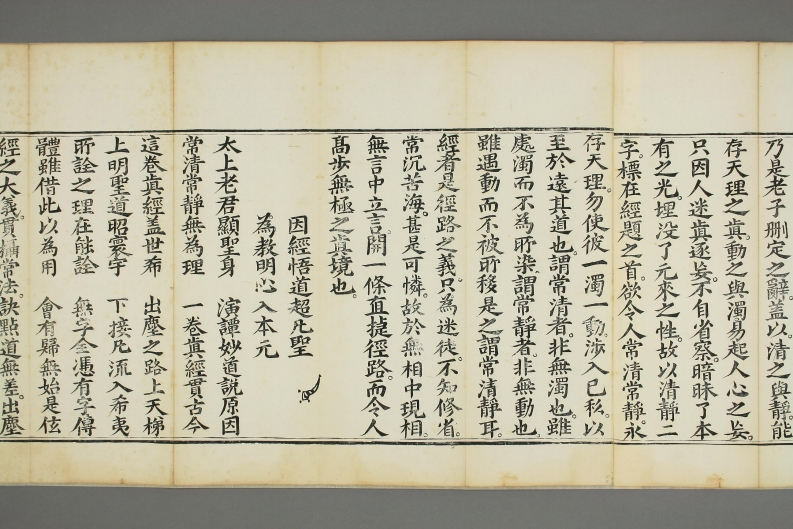 乃是老子删定之辭。蓋以清之與靜。能
存天理之眞。動之與濁易起人心之妄。
只因人迷眞逐妄。不自省察。暗昧了本
有之光。埋没了元來之性。故以清靜二
字。標在經題之首。欲令人常清常靜。永
存天理。勿使彼一濁一動。涉入已私。以
至於遠其道也。謂常清者。非無濁也。雖
處濁而不為所染。謂常靜者。非無動也。
雖遇動而不被所移。是之謂常清靜耳。
經者。是徑路之義。只為迷徒。不知修省。
常沉苦海。甚是可憐。故於無相中現相。
無言中立言。開一條直捷徑路。而令人
高步無極之眞境也。
因經悟道超凡聖
為教明心入本元
太上老君顯聖身 演譚妙道說原因
常清常靜無為理 一卷眞經貫古今
這卷眞經盖世希 出塵之路上天梯
上明聖道昭寰宇 下接凡流入希夷
所詮之理在能詮 無字全憑有字傳
體雖借此以為用 會有歸無始是佐
經之大義。貫攝常法。訣點道無差。出塵